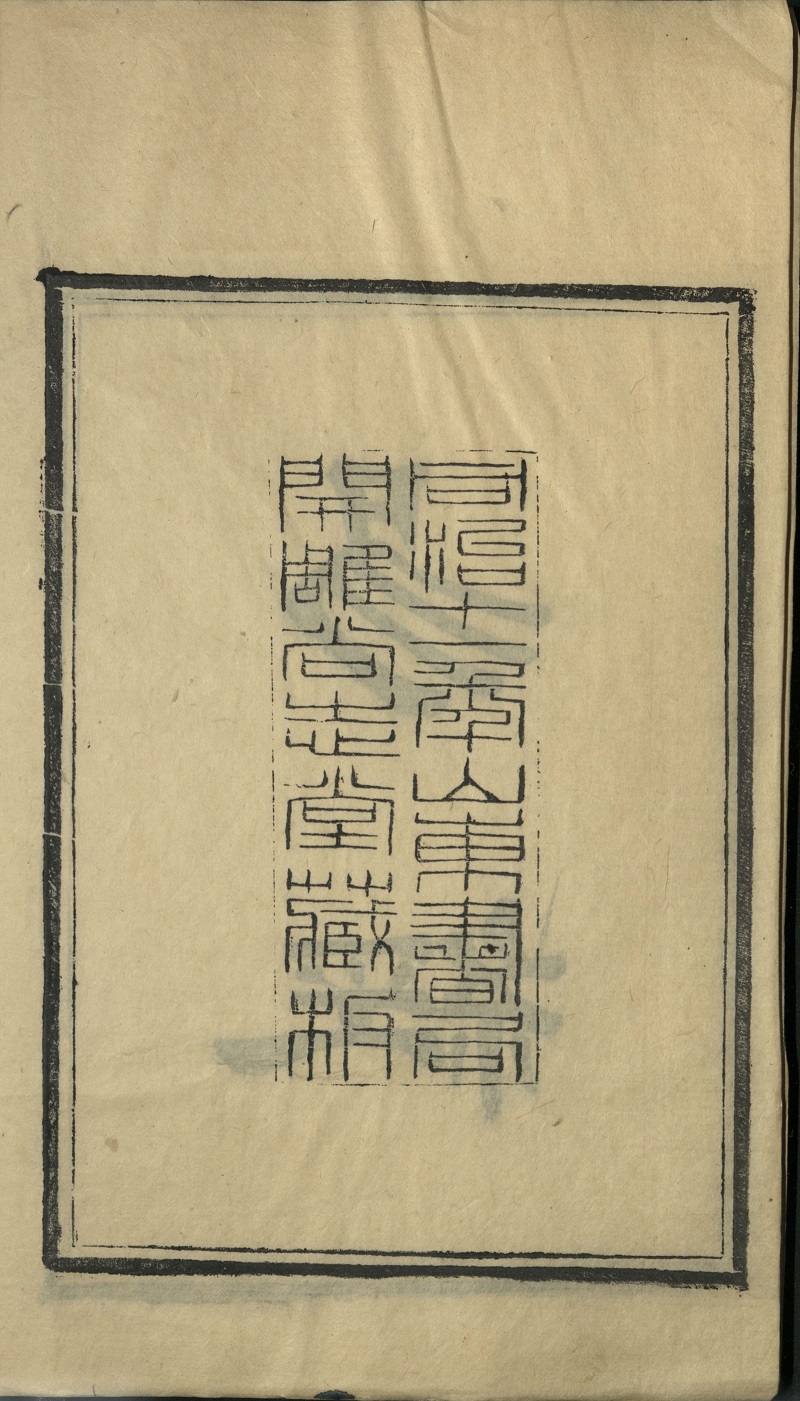 同治十一年山東書局
開雕尚志堂藏板